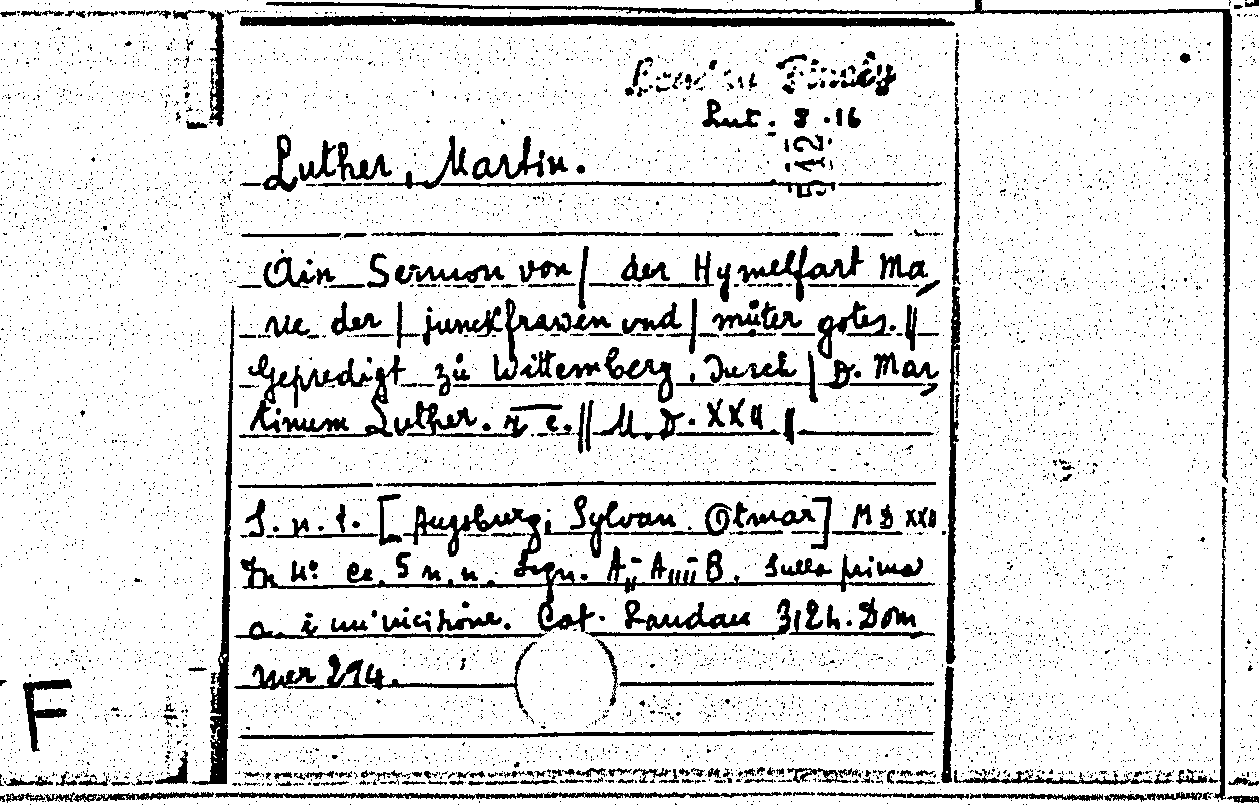 Landau Finaly
Lut. 8.16
512
Luther, Martin.
Ain Sermon von | der Hymelfart Ma
rie der | junckfrawen vnd | můter gotes. ||
Gepredigt zů Wittemberg. Durch | D. Mar
tinum Luther. ꝛc̄. || M.D.XXII ||
S. n. t. [Augsburg; Sylvan Otmar] MDXXII
In 4º cc. 5 n.n. Segn. Aii-Aiiii B. Sulla prima
c. è un'incisione. Cat. Landau 312 h. Dom
mer 274.
F